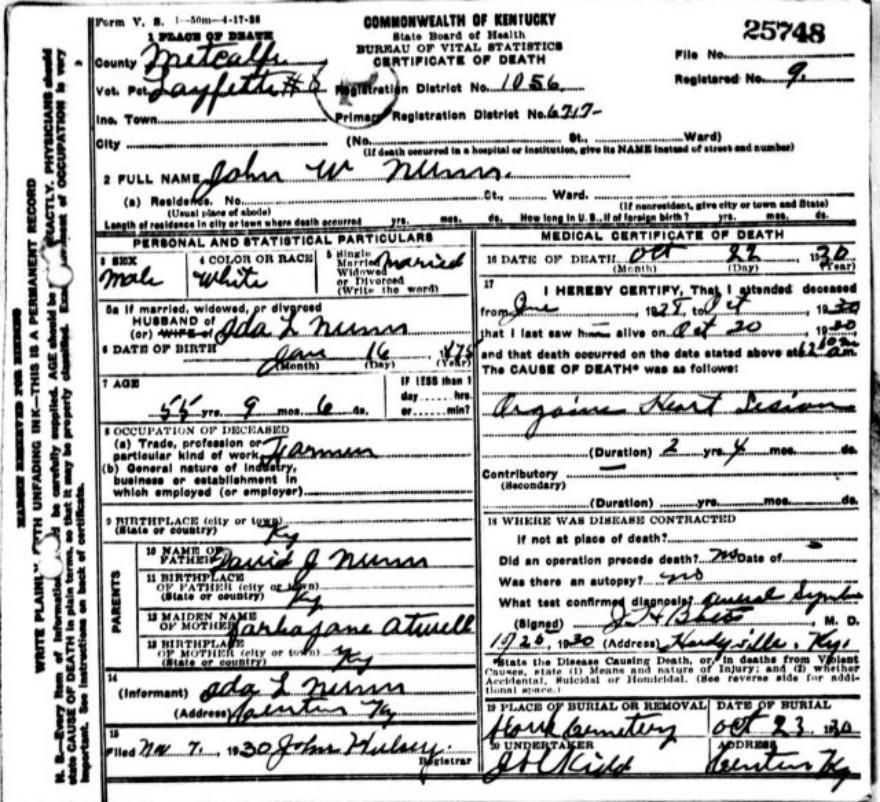 Form V. S. 1—50m—4-17-26
COMMONWEALTH OF KENTUCKY
State Board of Health
BUREAU OF VITAL STATISTICS
CERTIFICATE OF DEATH
25748
1 PLACE OF DEATH
County Metcalfe
File No.
Vot. Pct. Layfette #8
Registration District No. 1056
Registered No. 9.
Inc. Town
Primary Registration District No. 6717-
City (No. St., Ward)
(If death occurred in a hospital or institution, give its NAME instead of street and number)
2 FULL NAME John W Nunn.
(a) Residence. No. St., Ward.
(Usual place of abode) (If nonresident, give city or town and State)
Length of residence in city or town where death occurred yrs. mos. ds. How long in U. S., if of foreign birth? yrs. mos. ds.
PERSONAL AND STATISTICAL PARTICULARS
3 SEX
Male
4 COLOR OR RACE
White
5 Single
Married
Widowed
or Divorced
(Write the word)
Married
5a If married, widowed, or divorced
HUSBAND of
(or) WIFE of Ida L Nunn
6 DATE OF BIRTH Jan 16, 1875
(Month) (Day) (Year)
7 AGE
55 yrs. 9 mos. 6 ds.
IF LESS than 1
day hrs.
or min?
8 OCCUPATION OF DECEASED
(a) Trade, profession or
particular kind of work Farmer
(b) General nature of industry,
business or establishment in
which employed (or employer)
9 BIRTHPLACE (city or town)
(State or country) Ky
PARENTS
10 NAME OF
FATHER David J Nunn
11 BIRTHPLACE
OF FATHER (city or town)
(State or country) Ky
12 MAIDEN NAME
OF MOTHER Atwell
13 BIRTHPLACE
OF MOTHER (city or town)
(State or country) Ky
14
(Informant) Ida L Nunn
(Address) Center Ky
15
Filed Nov 7, 1930 John Hulsey.
Registrar
MEDICAL CERTIFICATE OF DEATH
16 DATE OF DEATH Oct 22 1930
(Month) (Day) (Year)
17
I HEREBY CERTIFY, That I attended deceased
from 1928 to Oct 1930
that I last saw h alive on Oct 20, 1930,
and that death occurred on the date stated above at am.
The CAUSE OF DEATH* was as follows:
Heart Lesion
(Duration) 2 yrs. 4 mos. ds.
Contributory —
(Secondary)
(Duration) yrs. mos. ds.
18 WHERE WAS DISEASE CONTRACTED
if not at place of death?
Did an operation precede death? No Date of
Was there an autopsy? no
What test confirmed diagnosis? General
(Signed) J H , M. D.
1930 (Address) Hardyville, Ky.
*State the Disease Causing Death, or, in deaths from Violent
Causes, state (1) Means and nature of Injury; and (2) whether
Accidental, Suicidal or Homicidal. (See reverse side for addi-
tional space.)
19 PLACE OF BURIAL OR REMOVAL
Cemetery
DATE OF BURIAL
Oct 23 1930
20 UNDERTAKER
Kidd
ADDRESS
Center Ky
MARGIN RESERVED FOR BINDING
WRITE PLAINLY WITH UNFADING INK—THIS IS A PERMANENT RECORD
N. B.—Every item of information be carefully supplied. AGE should be EXACTLY. PHYSICIANS should
state CAUSE OF DEATH in plain terms, so that it may be properly classified. of OCCUPATION is very
important. See instructions on back of certificate.